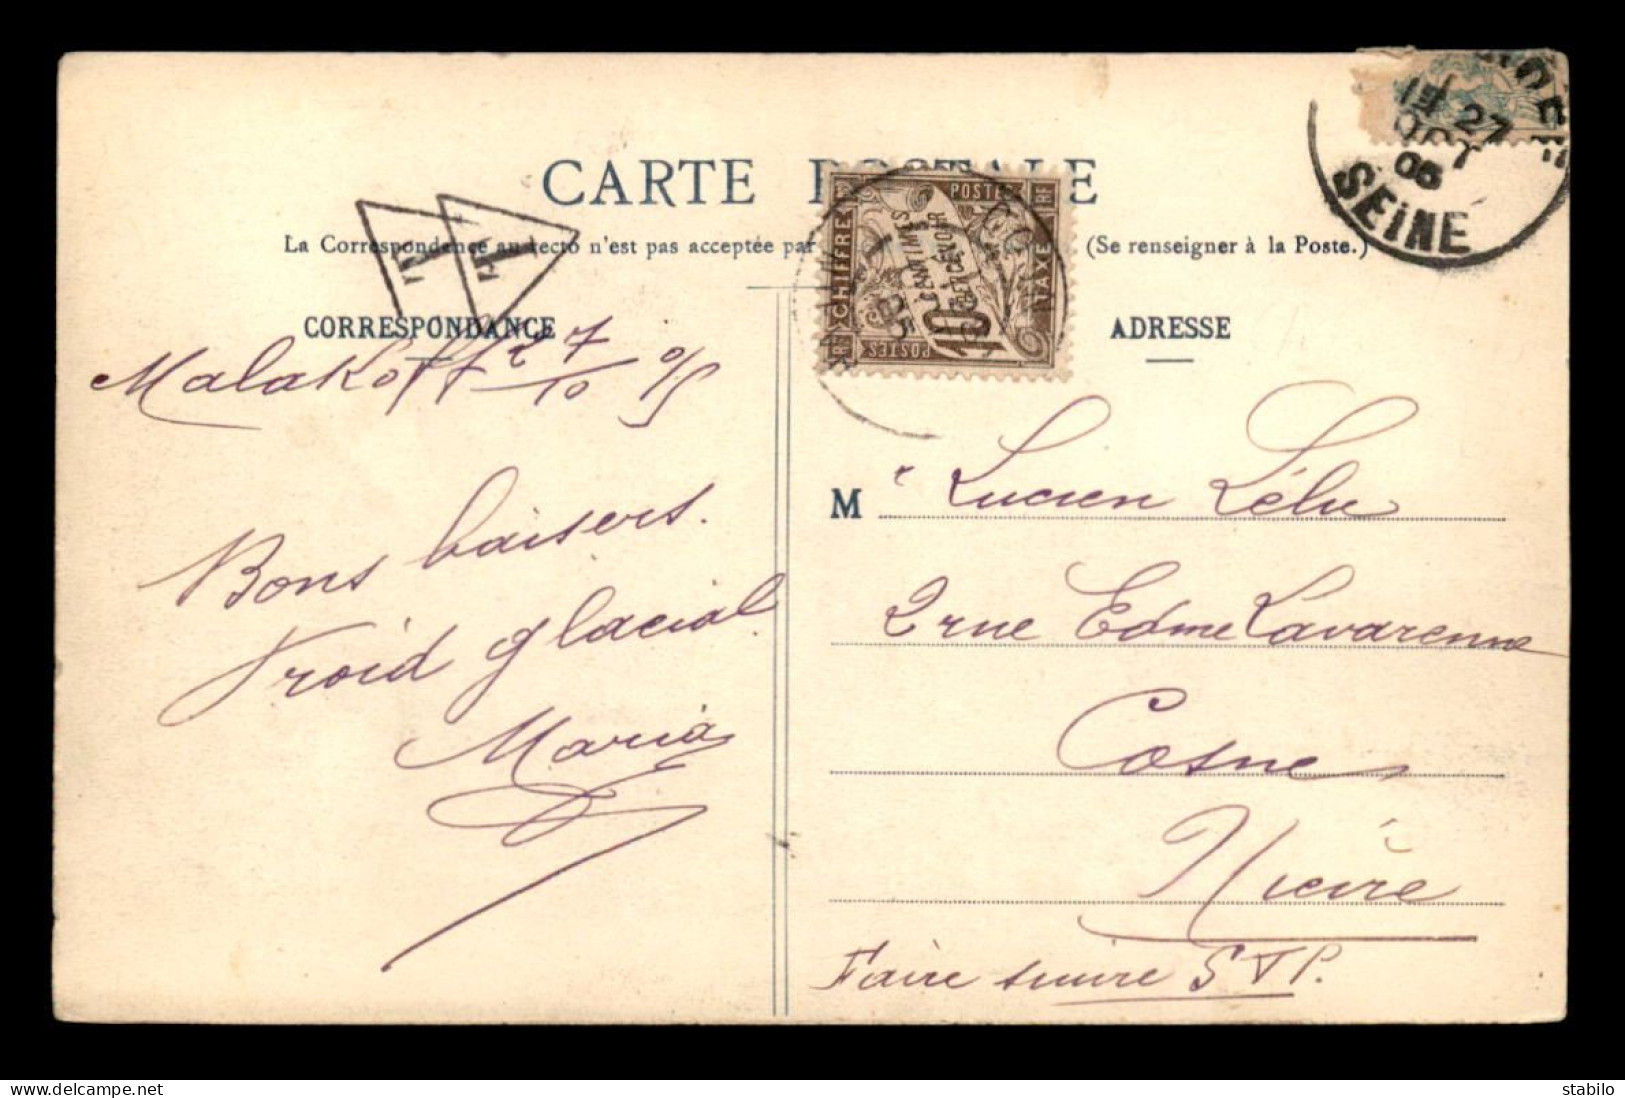 CARTE POSTALE
La Correspondance au recto n'est pas acceptée par (Se renseigner à la Poste.)
CORRESPONDANCE
ADRESSE
Malakoff 27/10 05
Bons baisers.
Froid glacial
Maria
Mr Lucien Lélu
2 rue Edme Lavarenne
Cosne
Nièvre
Faire suivre STP.
CHIFFRE
TAXE
POSTES
POSTES
RF
10 CENTIMES
A PERCEVOIR
27
OCT
05
SEINE
delcampe.net
stabilo